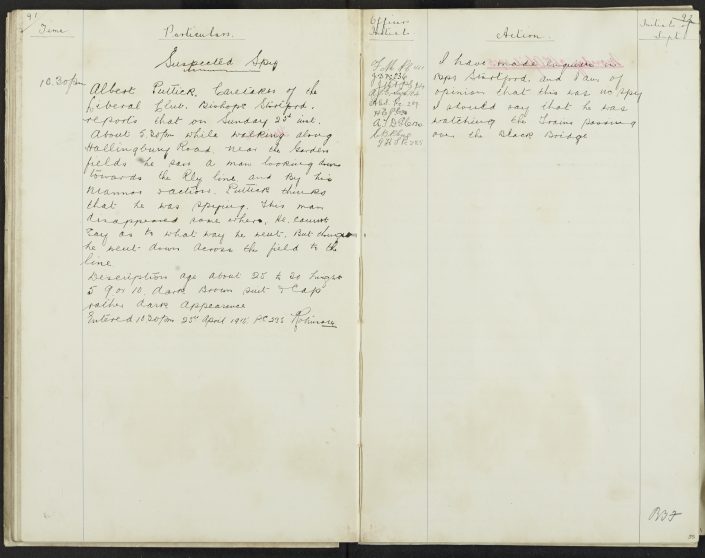 91
Time
Particulars.
Suspected Spy
10.30pm Albert Puttick, Caretaker of the
Liberal Club. Bishops Stortford.
reports that on Sunday 25th inst.
About 5.30pm while walking along
Hallingbury Road. near the Garden
fields he saw a man looking down
towards the Rly line and by his
Manner & action. Puttick thinks
that he was spying. This man
disappeared some where, He cannot
say as to what way he went. But
he went down across the field to the
line
Description age about 25 to 30 height
5 9 or 10 dark Brown suit & Cap
rather dark Appearence
Entered 10.30pm 25th April 1915. PC 295 Robinson
Officer
Initials
Action.
Initials of
Supt
I have made enquiries in
Bps Stortford, and I am of
opinion that this was no spy
I should say that he was
watching the Trains passing
over the Black Bridge
35